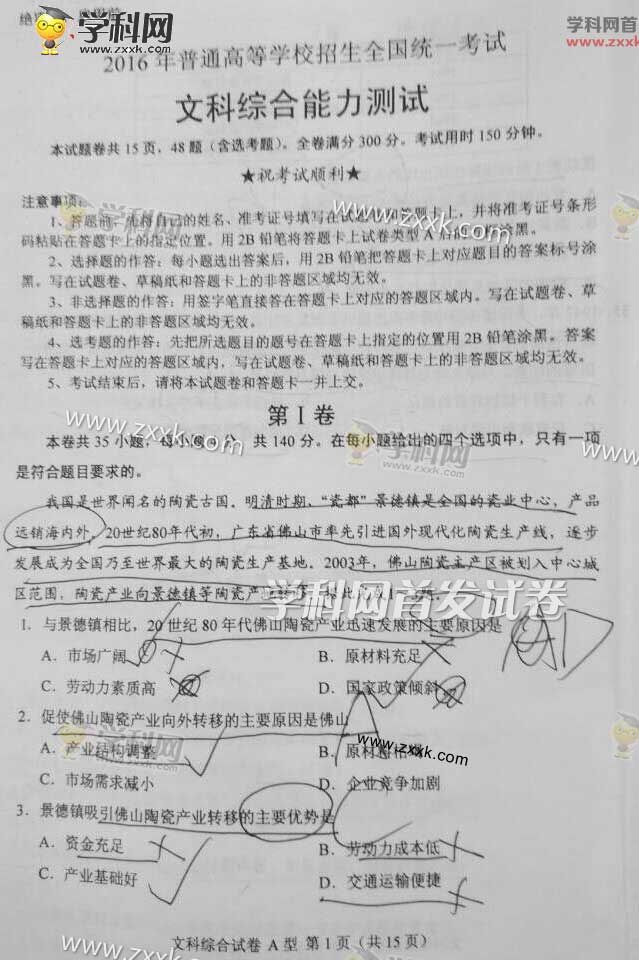 绝
学科网
www.zxxk.com
学科网
www.zxxk
2016年普通高等学校招生全国统一考试
文科综合能力测试
本试题卷共15页，48题（含选考题）。全卷满分300分。考试用时150分钟。
★祝考试顺利★
注意事项：
1、答题前，先将自己的姓名、准考证号填写在试题卷和答题卡上，并将准考证号条形
码粘贴在答题卡上的指定位置。用2B铅笔将答题卡上试卷类型A后的方框涂黑。
2、选择题的作答：每小题选出答案后，用2B铅笔把答题卡上对应题目的答案标号涂
黑。写在试题卷、草稿纸和答题卡上的非答题区域均无效。
3、非选择题的作答：用签字笔直接答在答题卡上对应的答题区域内。写在试题卷、草
稿纸和答题卡上的非答题区域均无效。
4、选考题的作答：先把所选题目的题号在答题卡上指定的位置用2B铅笔涂黑。答案
写在答题卡上对应的答题区域内，写在试题卷、草稿纸和答题卡上的非答题区域均无效。
5、考试结束后，请将本试题卷和答题卡一并上交。
www.zxxk.com
第Ⅰ卷
本卷共35小题，每小题 分，共140分。在每小题给出的四个选项中，只有一项
是符合题目要求的。
我国是世界闻名的陶瓷古国。明清时期，“瓷都”景德镇是全国的瓷业中心，产品
远销海内外。20世纪80年代初，广东省佛山市率先引进国外现代化陶瓷生产线，逐步
发展成为全国乃至世界最大的陶瓷生产基地。2003年，佛山陶瓷主产区被划入中心城
区范围，陶瓷产业向景德镇等陶瓷产业转移。据此完成1～3题。
学科网首发试卷
1．与景德镇相比，20世纪80年代佛山陶瓷产业迅速发展的主要原因是
A．市场广阔 B．原材料充足
C．劳动力素质高 D．国家政策倾斜
2．促使佛山陶瓷产业向外转移的主要原因是佛山
A．产业结构调整 B．原材料枯
C．市场需求减小 D．企业竞争加剧
3．景德镇吸引佛山陶瓷产业转移的主要优势是
A．资金充足 B．劳动力成本低
C．产业基础好 D．交通运输便捷
文科综合试卷 A型 第1页（共15页）
www.zxxk.com